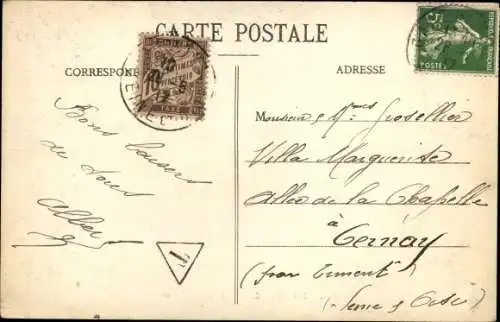 CARTE POSTALE
CORRESPON
ADRESSE
Bons baisers
de tous
Albert
T
10
TAXE
5c
POSTES
Monsieur & Mme Grosellier
Villa Marguerite
Allée de la Chapelle
à
Cernay
(par Ermont)
(Seine & Oise)